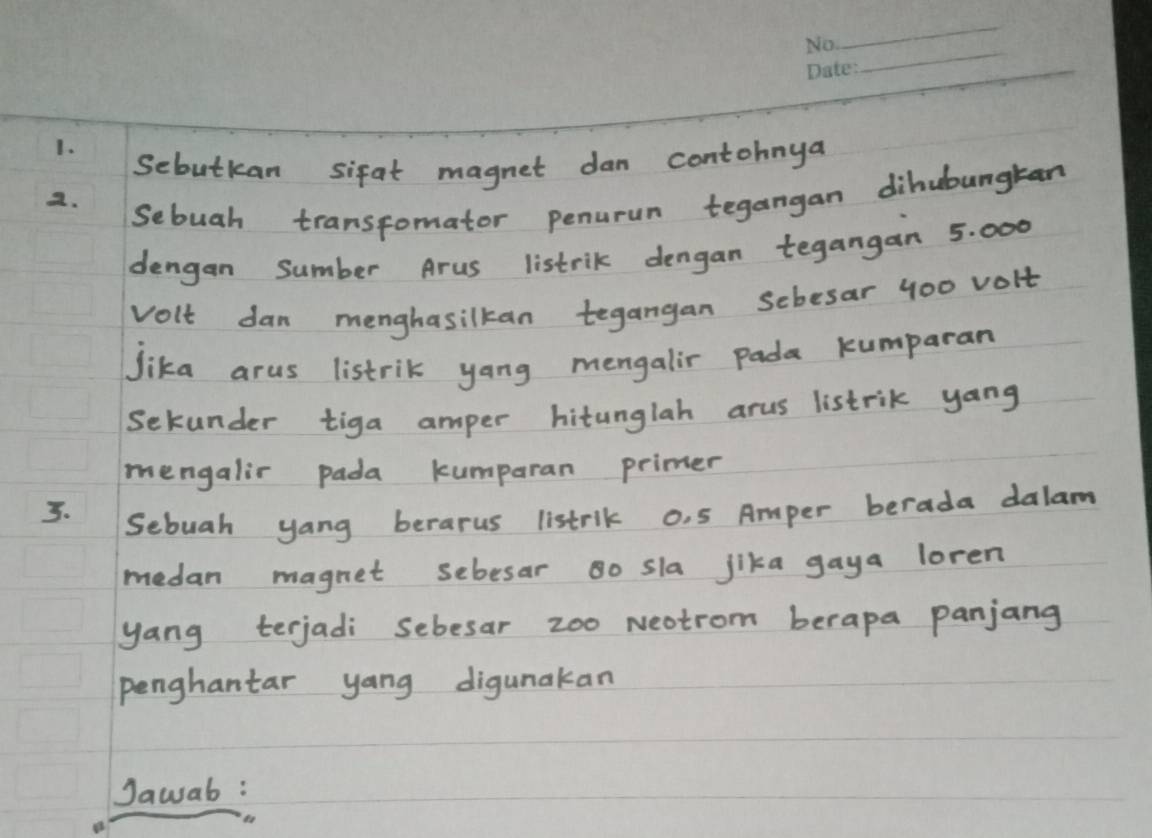 No.
Date:
1. Sebutkan sifat magnet dan contohnya
2. Sebuah transfomator penurun tegangan dihubungkan
dengan sumber Arus listrik dengan tegangan 5.000
Volt dan menghasilkan tegangan sebesar 400 volt
jika arus listrik yang mengalir pada kumparan
sekunder tiga amper hitunglah arus listrik yang
mengalir pada kumparan primer
3. Sebuah yang berarus listrik 0,5 Amper berada dalam
medan magnet sebesar 80 sla jika gaya loren
yang terjadi sebesar 200 Neotrom berapa panjang
penghantar yang digunakan
Jawab :